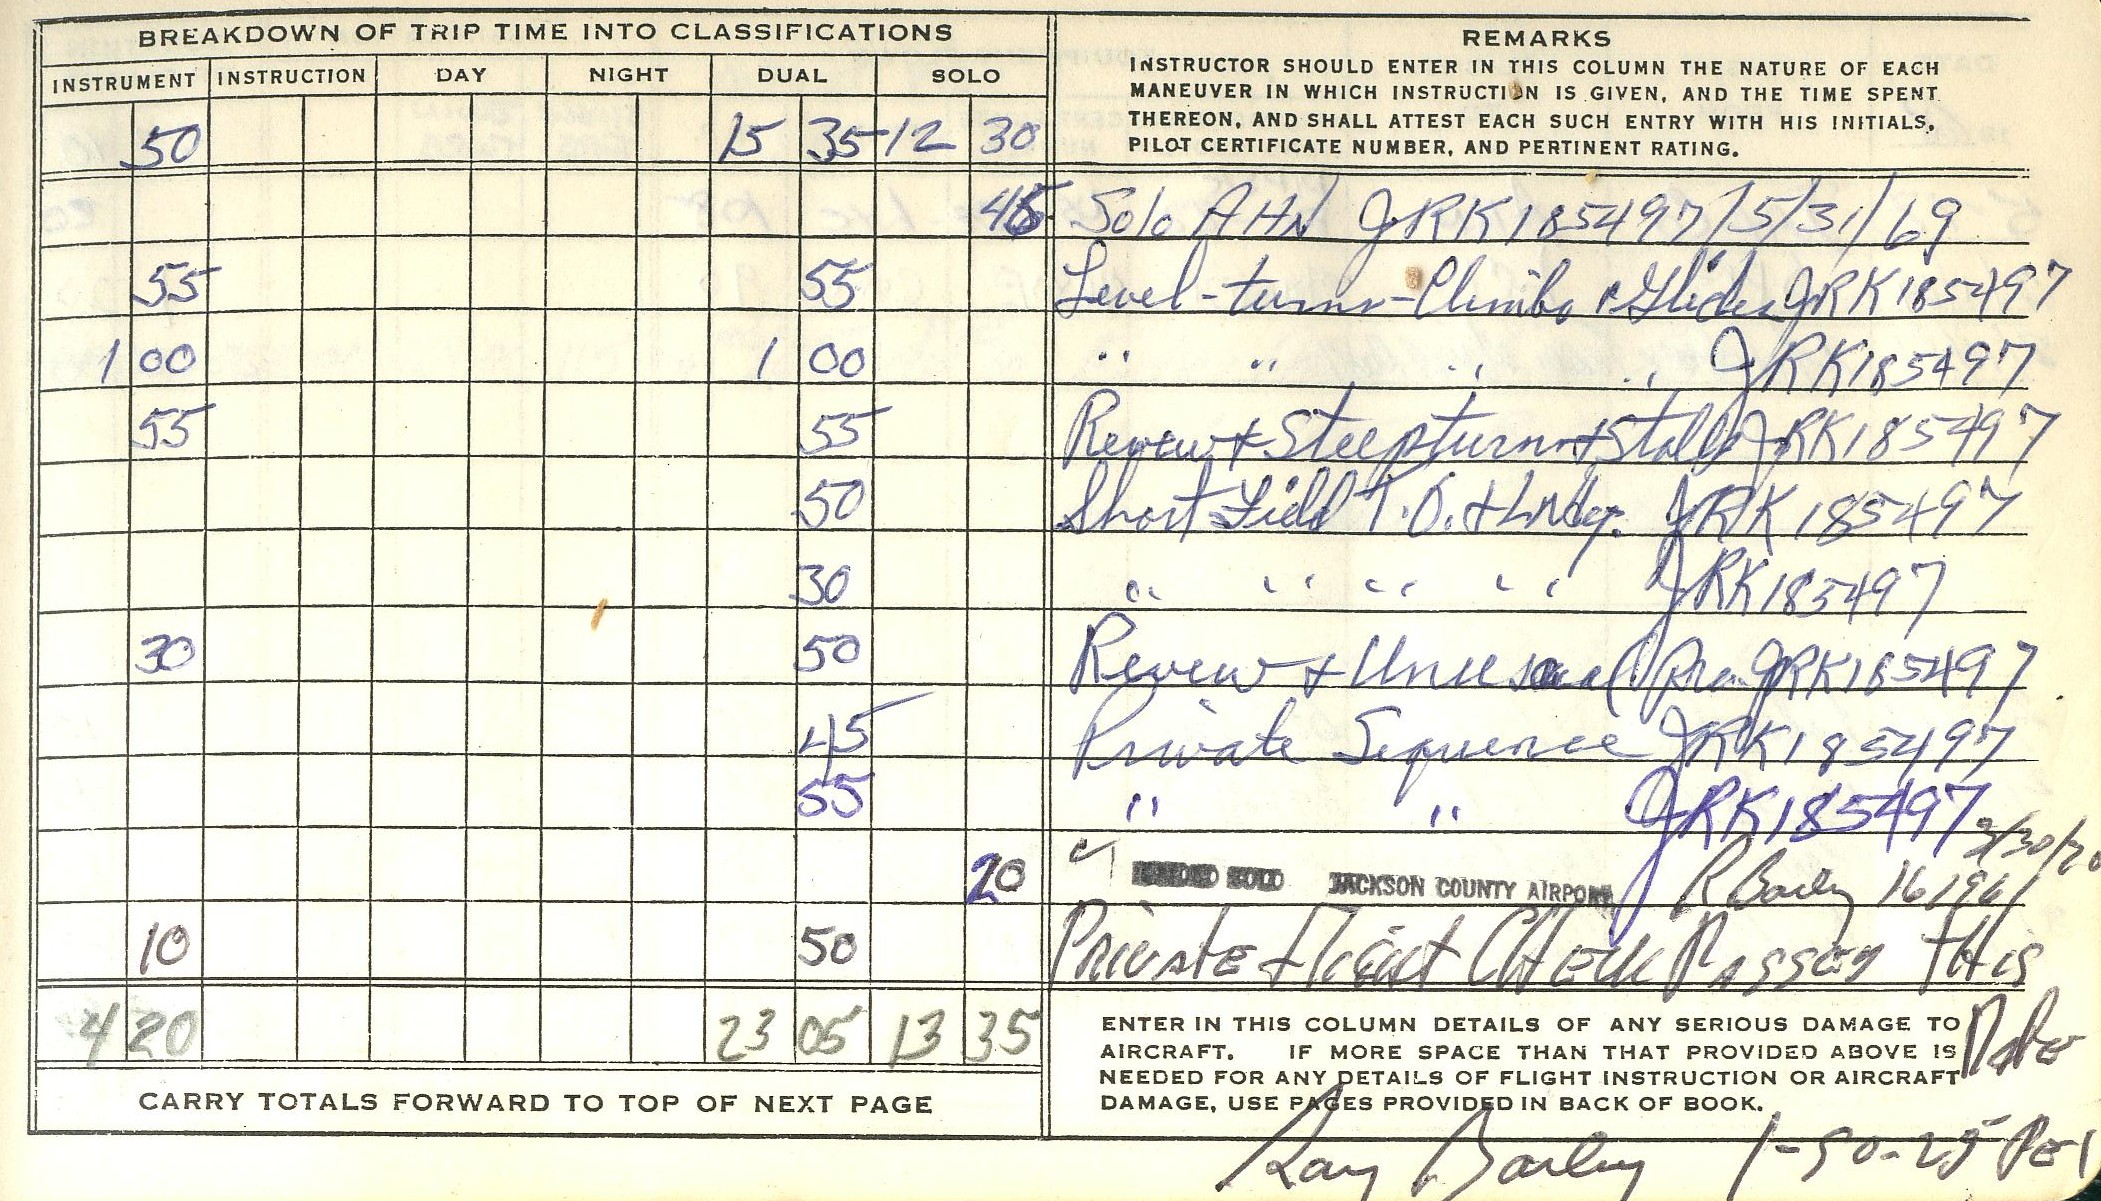 BREAKDOWN OF TRIP TIME INTO CLASSIFICATIONS
INSTRUMENT INSTRUCTION DAY NIGHT DUAL SOLO
REMARKS
INSTRUCTOR SHOULD ENTER IN THIS COLUMN THE NATURE OF EACH
MANEUVER IN WHICH INSTRUCTION IS GIVEN, AND THE TIME SPENT
THEREON, AND SHALL ATTEST EACH SUCH ENTRY WITH HIS INITIALS,
PILOT CERTIFICATE NUMBER, AND PERTINENT RATING.
50 15 35 12 30
45 Solo AHN JRK185497/5/31/69
55 55 Level-turns-Climbs & Glides JRK185497
1 00 1 00 " " " " JRK185497
55 55 Review & Steep turns + Stalls JRK185497
50 Short Field T.O. & Lndg. JRK185497
30 " " " " JRK185497
30 50 Review & Unusual JRK185497
45 Private Sequence JRK185497
55 " " JRK185497
20 SOLO JACKSON COUNTY AIRPORT R Bailey 3/30/70
10 50 Private Flight Check Passed This
Date
4 20 23 05 13 35
ENTER IN THIS COLUMN DETAILS OF ANY SERIOUS DAMAGE TO
AIRCRAFT. IF MORE SPACE THAN THAT PROVIDED ABOVE IS
NEEDED FOR ANY DETAILS OF FLIGHT INSTRUCTION OR AIRCRAFT
DAMAGE, USE PAGES PROVIDED IN BACK OF BOOK.
CARRY TOTALS FORWARD TO TOP OF NEXT PAGE
Ray Bailey